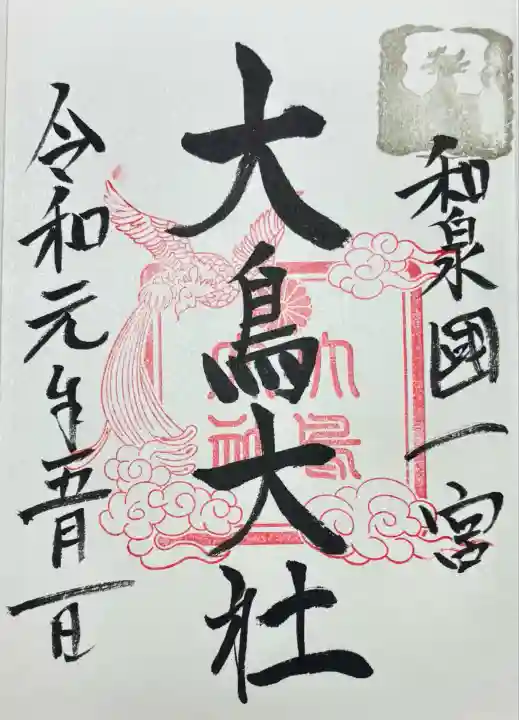 和泉國一宮
大鳥大社
令和元年五月一日